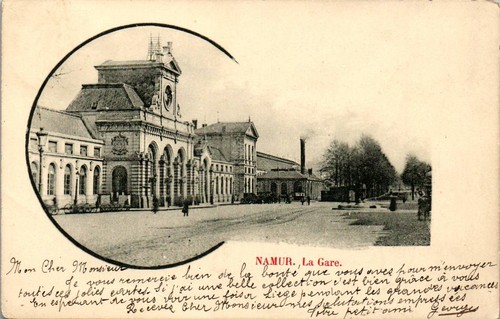 NAMUR. La Gare.
Mon Cher Monsieur
Je vous remercie bien de la bonté que vous avez pour m'envoyer
toutes ces jolies cartes. Si j'ai une belle collection c'est bien grâce à vous
En espérant de vous voir une fois à Liège pendant les grandes vacances
Recevez Cher Monsieur les salutations empressées
Votre petit ami